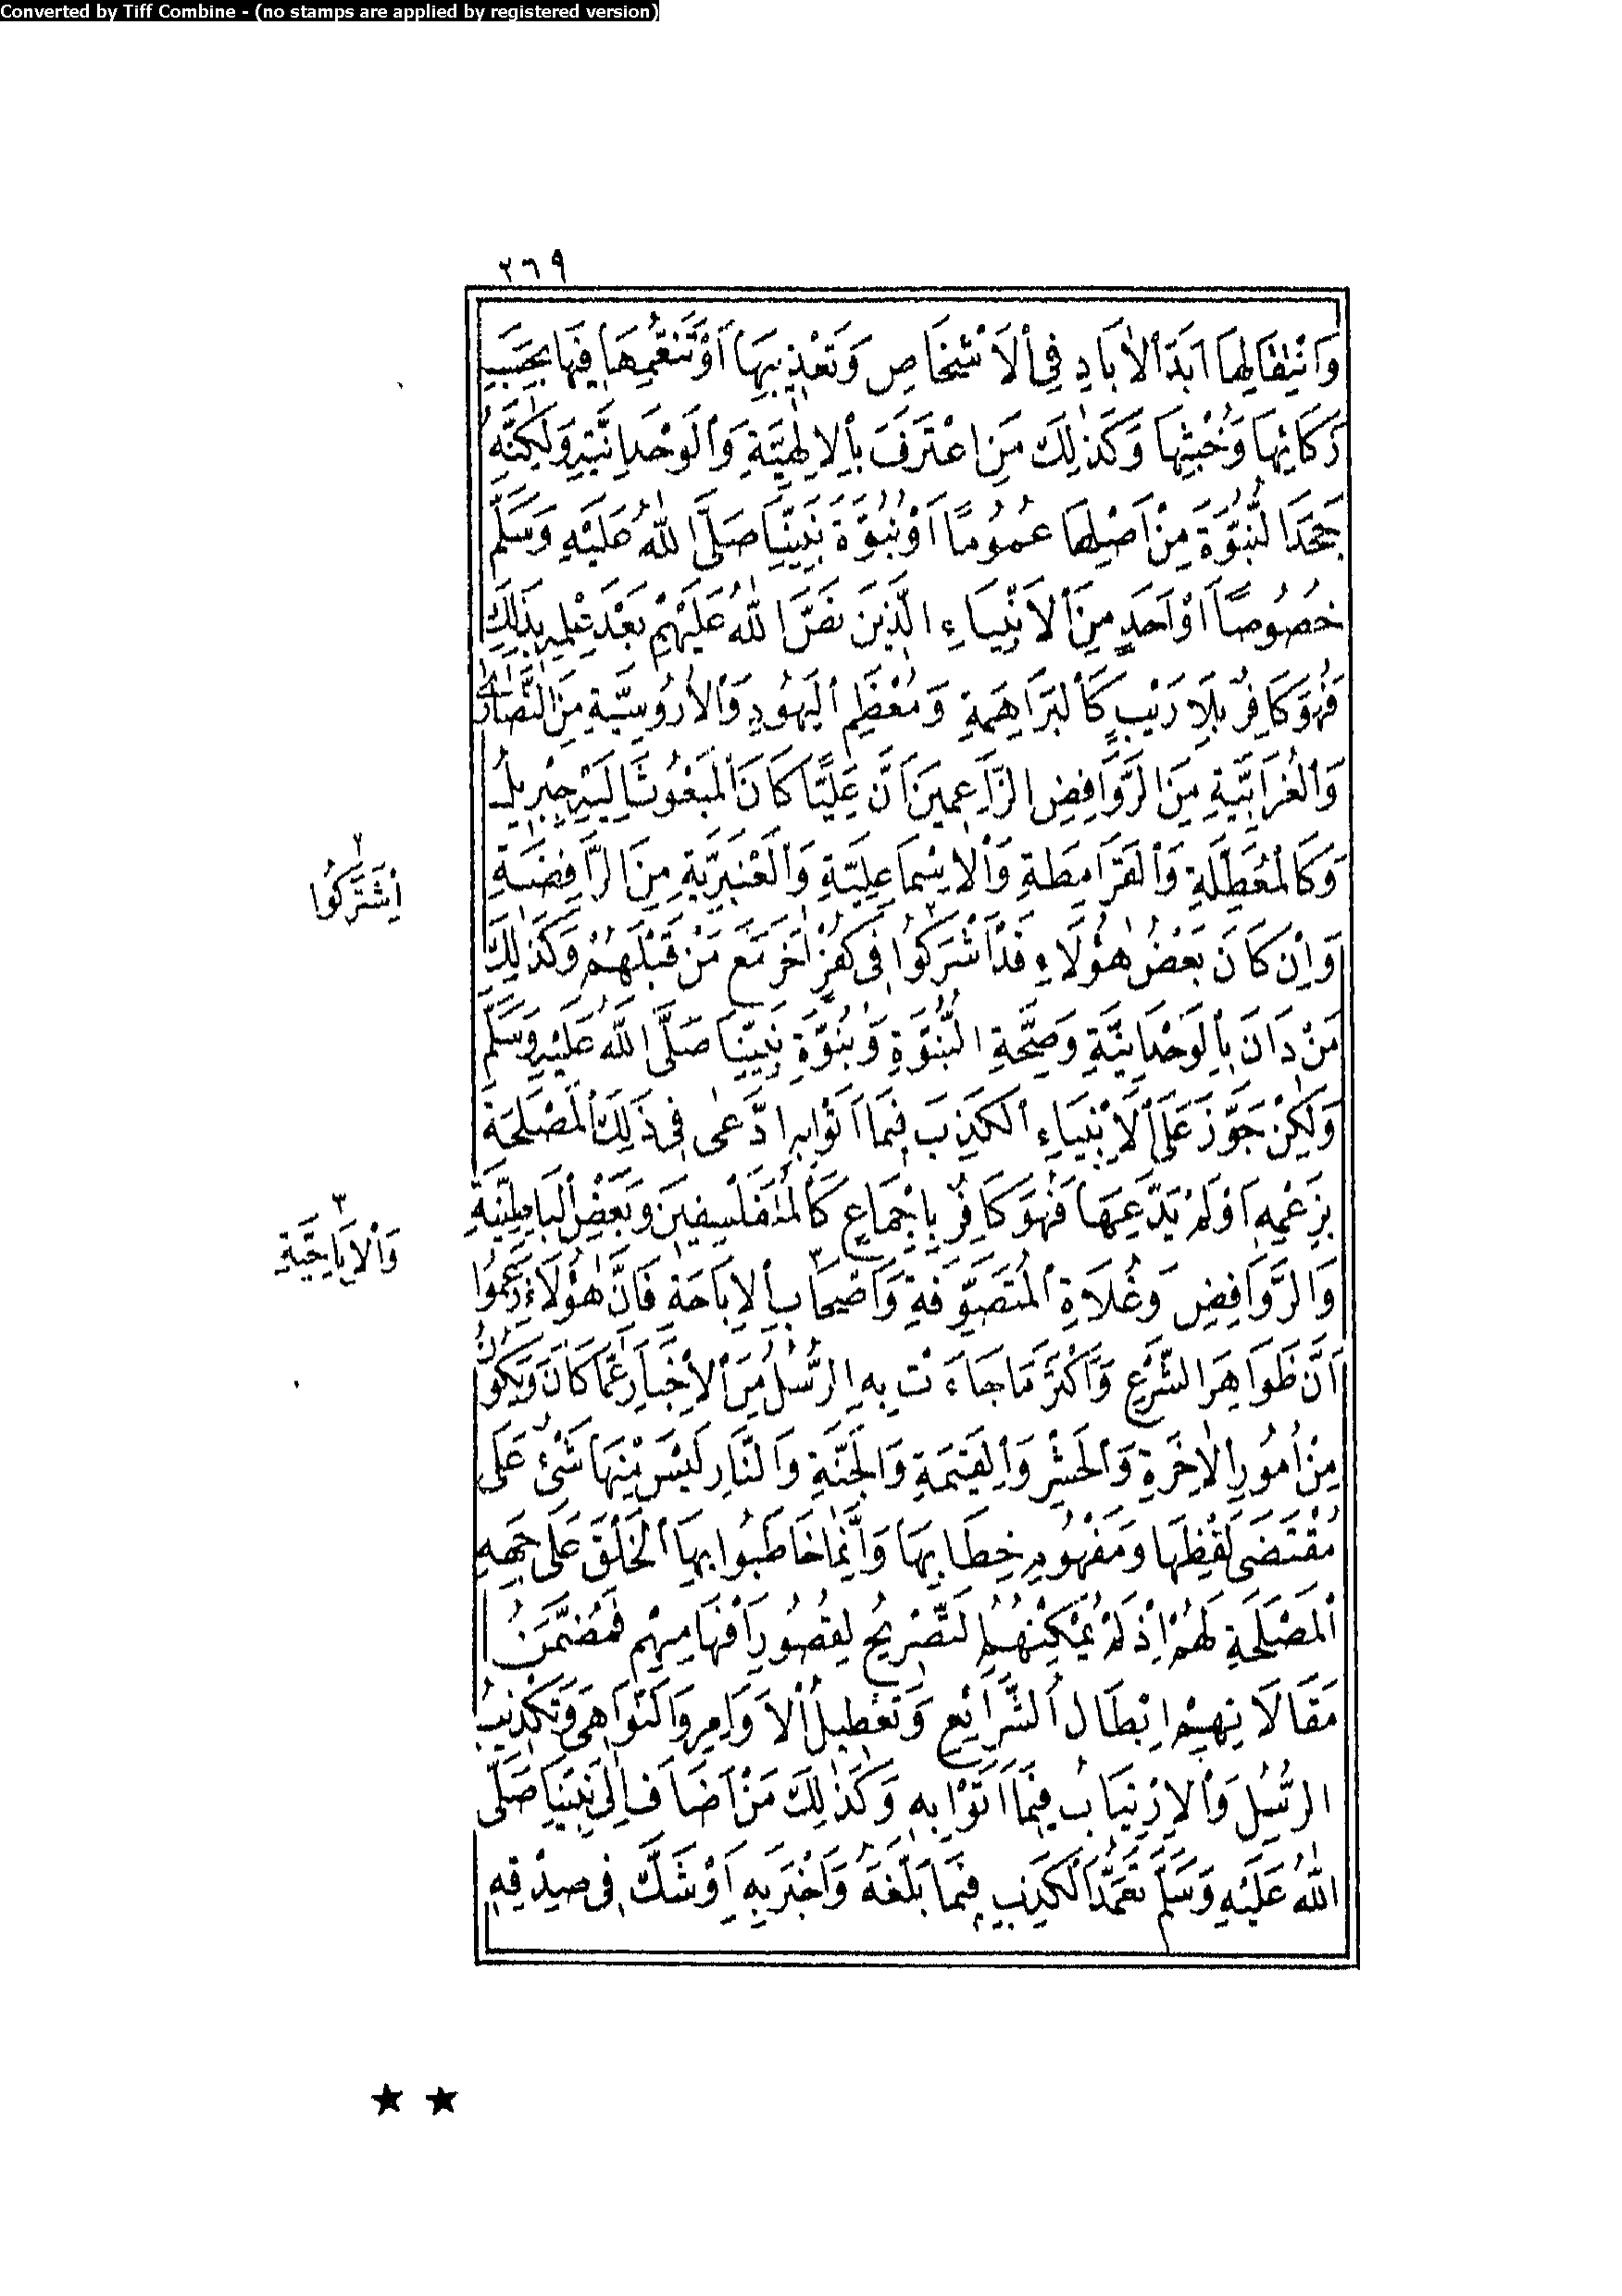 Converted by Tiff Combine - (no stamps are applied by registered version)
٢٦٩
وَانْتِقَالِهَا اَبَدَ الْاٰبَادِ فِى الْاَشْخَاصِ وَتَعْذِيبِهَا اَوْ تَنَعُّمِهَا فِيهَا بِحَسَبِ
زَكَائِهَا وَخُبْثِهَا وَكَذٰلِكَ مَنِ اعْتَرَفَ بِالْاِلٰهِيَّةِ وَالْوَحْدَانِيَّةِ وَلٰكِنَّهُ
جَحَدَ النُّبُوَّةَ مِنْ اَصْلِهَا عُمُومًا اَوْ نُبُوَّةَ نَبِيِّنَا صَلَّى اللّٰهُ عَلَيْهِ وَسَلَّمَ
خُصُوصًا اَوْ اَحَدٍ مِنَ الْاَنْبِيَاءِ الَّذِينَ نَصَّ اللّٰهُ عَلَيْهِمْ بَعْدَ عِلْمِهِ بِذٰلِكَ
فَهُوَ كَافِرٌ بِلَا رَيْبٍ كَالْبَرَاهِمَةِ وَمُعْظَمِ الْيَهُودِ وَالْاُرُوسِيَّةِ مِنَ النَّصَارٰى
وَالْغُرَابِيَّةِ مِنَ الرَّوَافِضِ الزَّاعِمِينَ اَنَّ عَلِيًّا كَانَ الْمَبْعُوثَ اِلَيْهِ جِبْرِيلُ
وَكَالْمُعَطِّلَةِ وَالْقَرَامِطَةِ وَالْاِسْمَاعِلِيَّةِ وَالْعَنْبَرِيَّةِ مِنَ الرَّافِضَةِ
وَاِنْ كَانَ بَعْضُ هٰؤُلَاءِ قَدْ اَشْرَكُوا٢ فِى كُفْرٍ اٰخَرَ مَعَ مَنْ قَبْلَهُمْ وَكَذٰلِكَ
٢ اِشْتَرَكُوا
مَنْ دَانَ بِالْوَحْدَانِيَّةِ وَصِحَّةِ النُّبُوَّةِ وَنُبُوَّةِ نَبِيِّنَا صَلَّى اللّٰهُ عَلَيْهِ وَسَلَّمَ
وَلٰكِنْ جَوَّزَ عَلَى الْاَنْبِيَاءِ الْكَذِبَ فِيمَا اَتَوْا بِهِ ادَّعٰى فِى ذٰلِكَ الْمَصْلَحَةَ
بِزَعْمِهِ اَوْ لَمْ يَدَّعِهَا فَهُوَ كَافِرٌ بِاِجْمَاعٍ كَالْمُتَفَلْسِفِينَ وَبَعْضِ الْبَاطِنِيَّةِ
وَالرَّوَافِضِ وَغُلَاةِ الْمُتَصَوِّفَةِ وَاَصْحَابِ الْاِبَاحَةِ٣ فَاِنَّ هٰؤُلَاءِ زَعَمُوا
٣ وَالْاِبَاحِيَّةِ
اَنَّ ظَوَاهِرَ الشَّرْعِ وَاَكْثَرَ مَا جَاءَتْ بِهِ الرُّسُلُ مِنَ الْاَخْبَارِ عَمَّا كَانَ وَيَكُونُ
مِنْ اُمُورِ الْاٰخِرَةِ وَالْحَشْرِ وَالْقِيٰمَةِ وَالْجَنَّةِ وَالنَّارِ لَيْسَ مِنْهَا شَىْءٌ عَلٰى
مُقْتَضٰى لَفْظِهَا وَمَفْهُومِ خِطَابِهَا وَاِنَّمَا خَاطَبُوا بِهَا الْخَلْقَ عَلٰى جِهَةِ
الْمَصْلَحَةِ لَهُمْ اِذْ لَمْ يُمْكِنْهُمُ التَّصْرِيحُ لِقُصُورِ اَفْهَامِهِمْ فَمُضَمَّنُ
مَقَالَاتِهِمْ اِبْطَالُ الشَّرَائِعِ وَتَعْطِيلُ الْاَوَامِرِ وَالنَّوَاهِى وَتَكْذِيبُ
الرُّسُلِ وَالْاِرْتِيَابُ فِيمَا اَتَوْا بِهِ وَكَذٰلِكَ مَنْ اَضَافَ اِلٰى نَبِيِّنَا صَلَّى
اللّٰهُ عَلَيْهِ وَسَلَّمَ تَعَمُّدَ الْكَذِبِ فِيمَا بَلَّغَهُ وَاَخْبَرَ بِهِ اَوْ شَكَّ فِى صِدْقِهِ